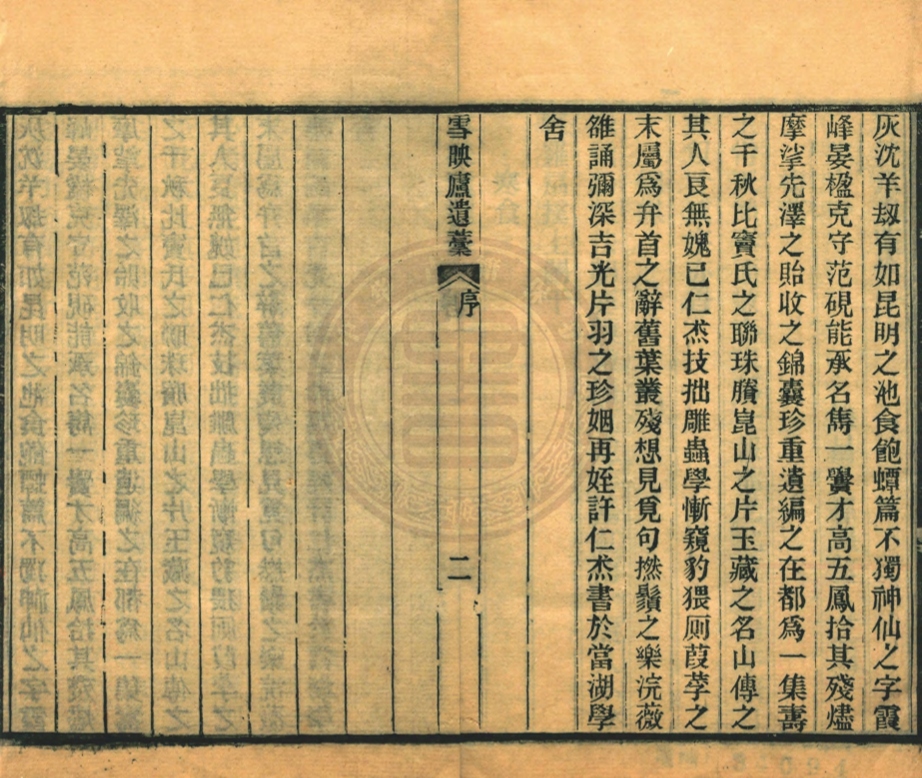 灰沈羊刼有如昆明之池食飽蟫篇不獨神仙之字霞
峰晏楹克守范硯能承名雋一黌才高五鳳拾其殘燼
摩挲先澤之貽收之錦囊珍重遺編之在都爲一集壽
之千秋比竇氏之聯珠賸崑山之片玉藏之名山傳之
其人良無媿已仁杰技拙雕蟲學慚窺豹猥厠葭莩之
末屬爲弁首之辭舊葉叢殘想見覓句撚鬚之樂浣薇
雒誦彌深吉光片羽之珍姻再姪許仁杰書於當湖學
舍
雪映廬遺藁 序 二